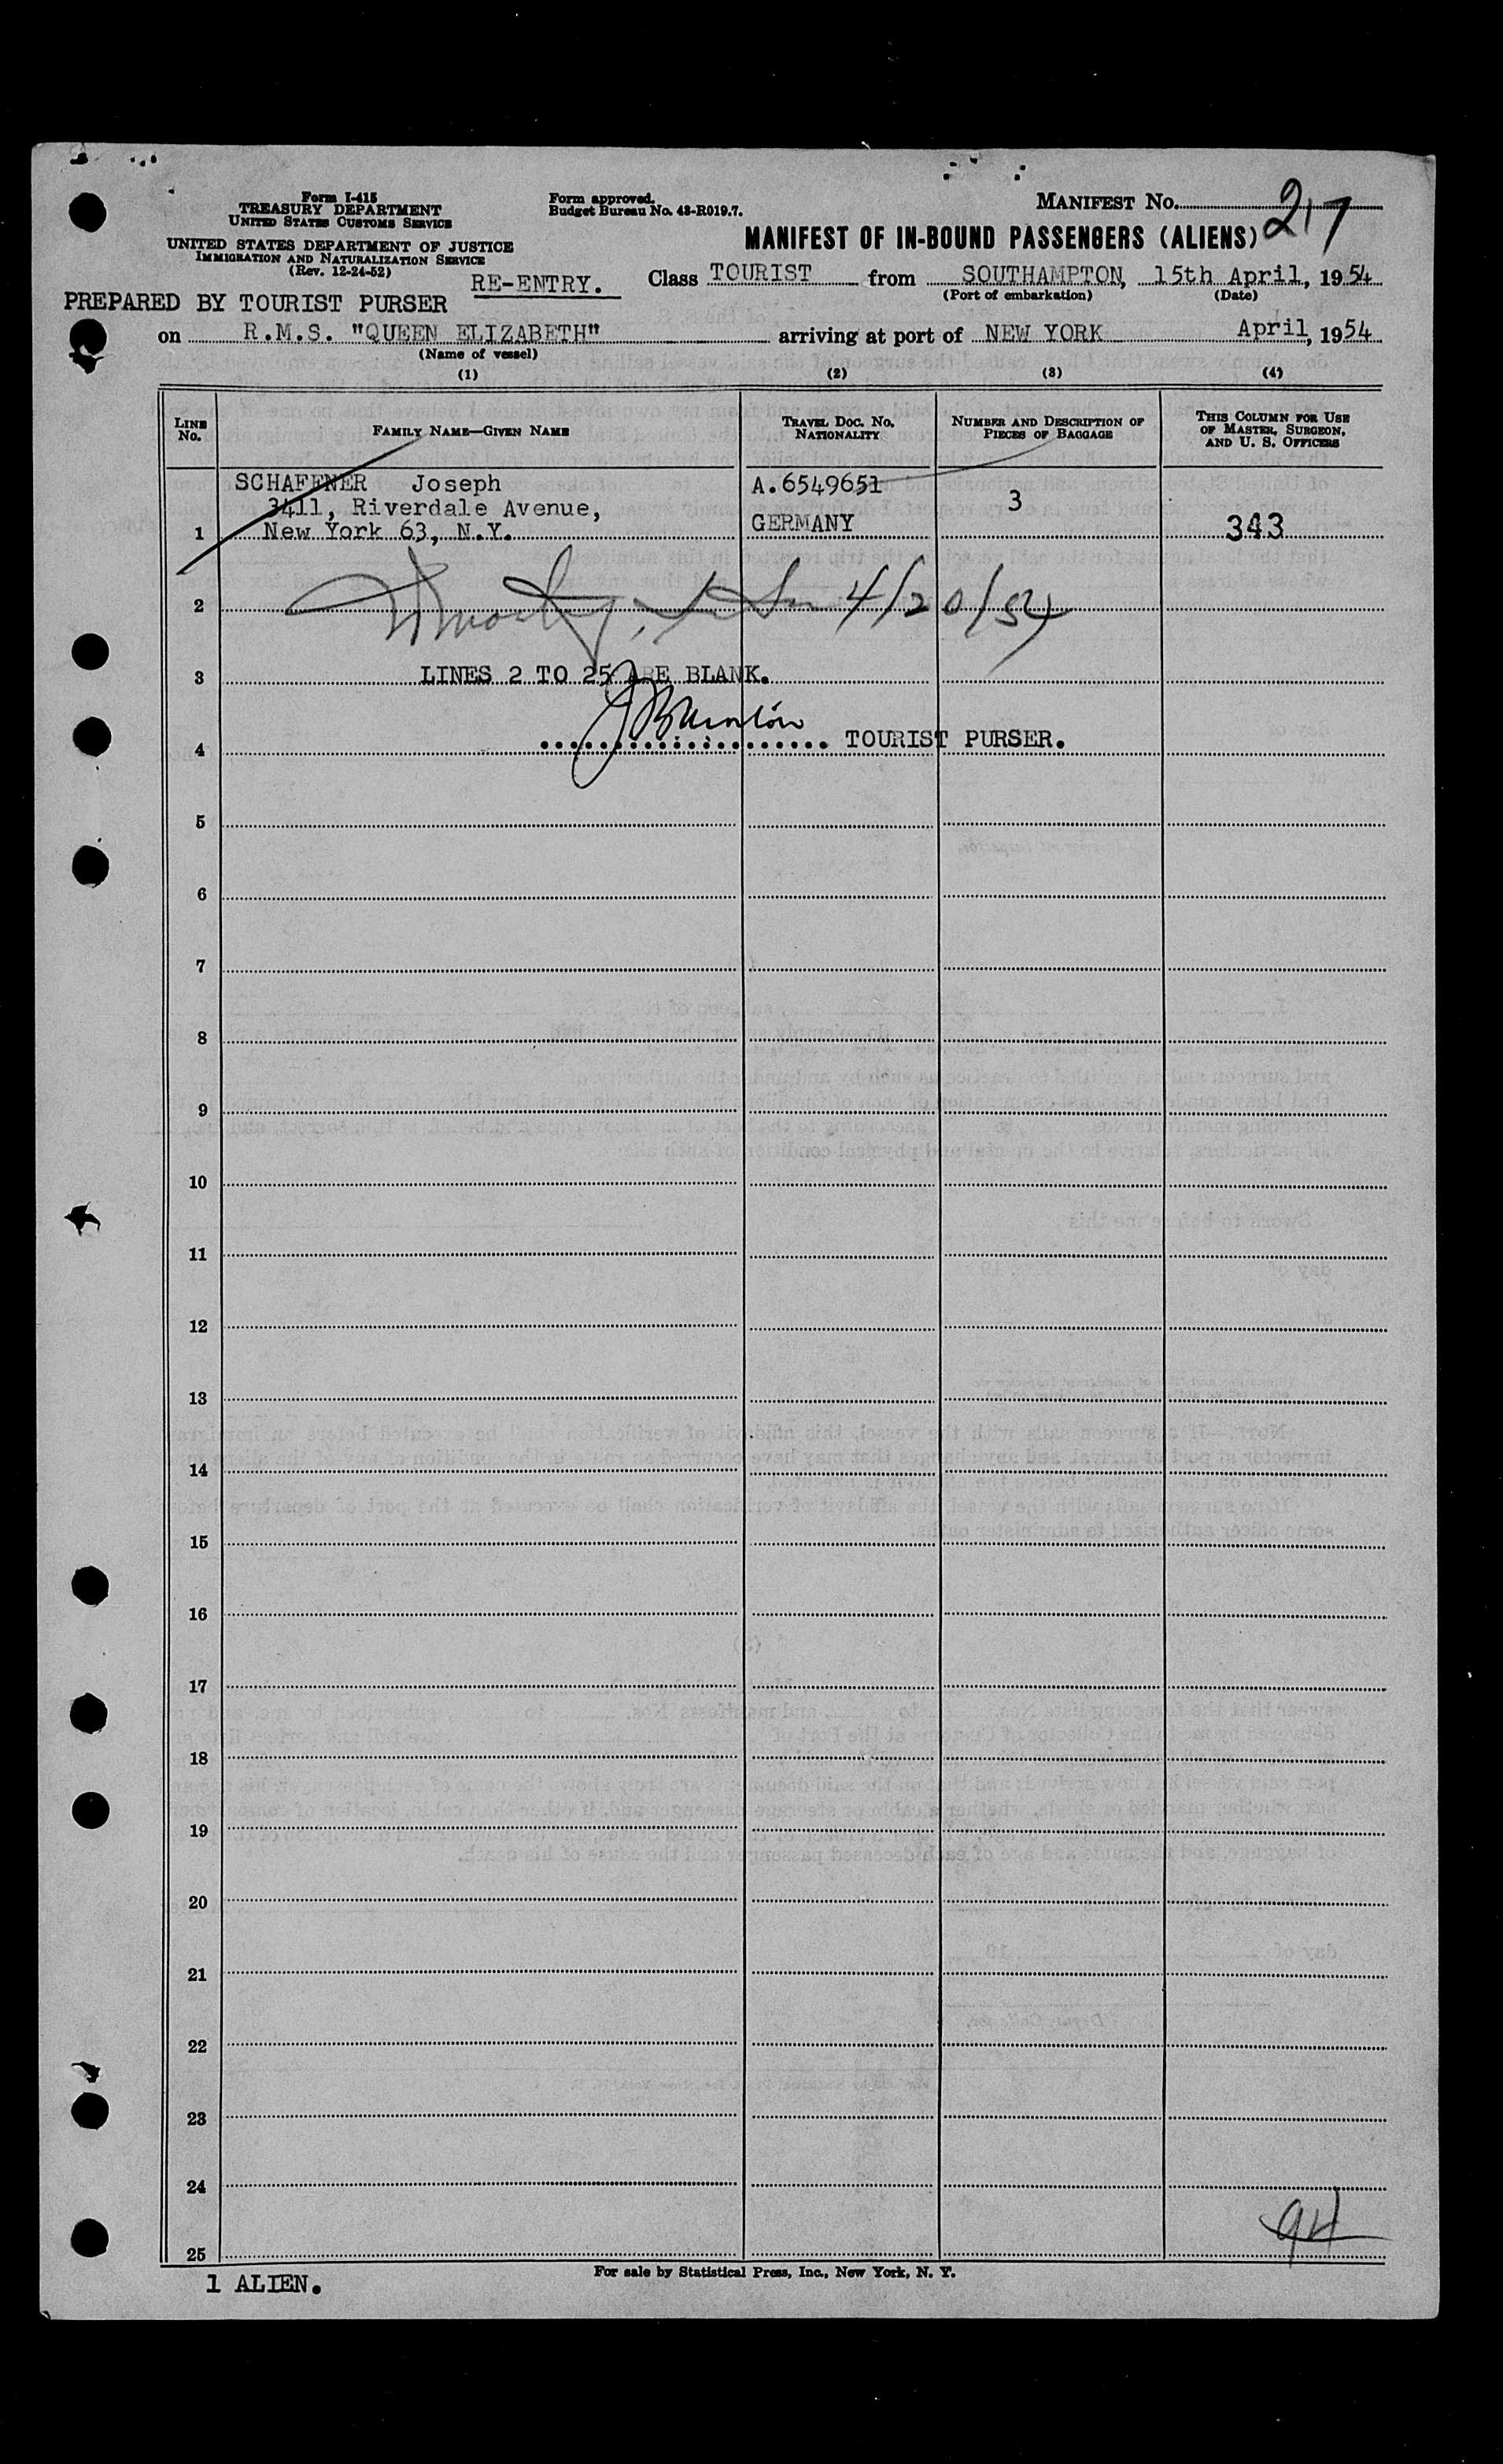 Form I-415
TREASURY DEPARTMENT
UNITED STATES CUSTOMS SERVICE
UNITED STATES DEPARTMENT OF JUSTICE
IMMIGRATION AND NATURALIZATION SERVICE
(Rev. 12-24-52)
Form approved.
Budget Bureau No. 43-R019.7.
MANIFEST No. 217
MANIFEST OF IN-BOUND PASSENGERS (ALIENS)
RE-ENTRY. Class TOURIST from SOUTHAMPTON, 15th April, 1954
(Port of embarkation) (Date)
PREPARED BY TOURIST PURSER
on R.M.S. "QUEEN ELIZABETH" arriving at port of NEW YORK April, 1954
(Name of vessel)
(1) (2) (3) (4)
LINE No. FAMILY NAME—GIVEN NAME TRAVEL DOC. No. NATIONALITY NUMBER AND DESCRIPTION OF PIECES OF BAGGAGE THIS COLUMN FOR USE OF MASTER, SURGEON, AND U. S. OFFICERS
SCHAFFNER Joseph A.6549651
3411, Riverdale Avenue, 3
1 New York 63, N.Y. GERMANY 343
2 4/20/54
3 LINES 2 TO 25 ARE BLANK.
4 TOURIST PURSER.
5
6
7
8
9
10
11
12
13
14
15
16
17
18
19
20
21
22
23
24
94
25
1 ALIEN.
For sale by Statistical Press, Inc., New York, N. Y.